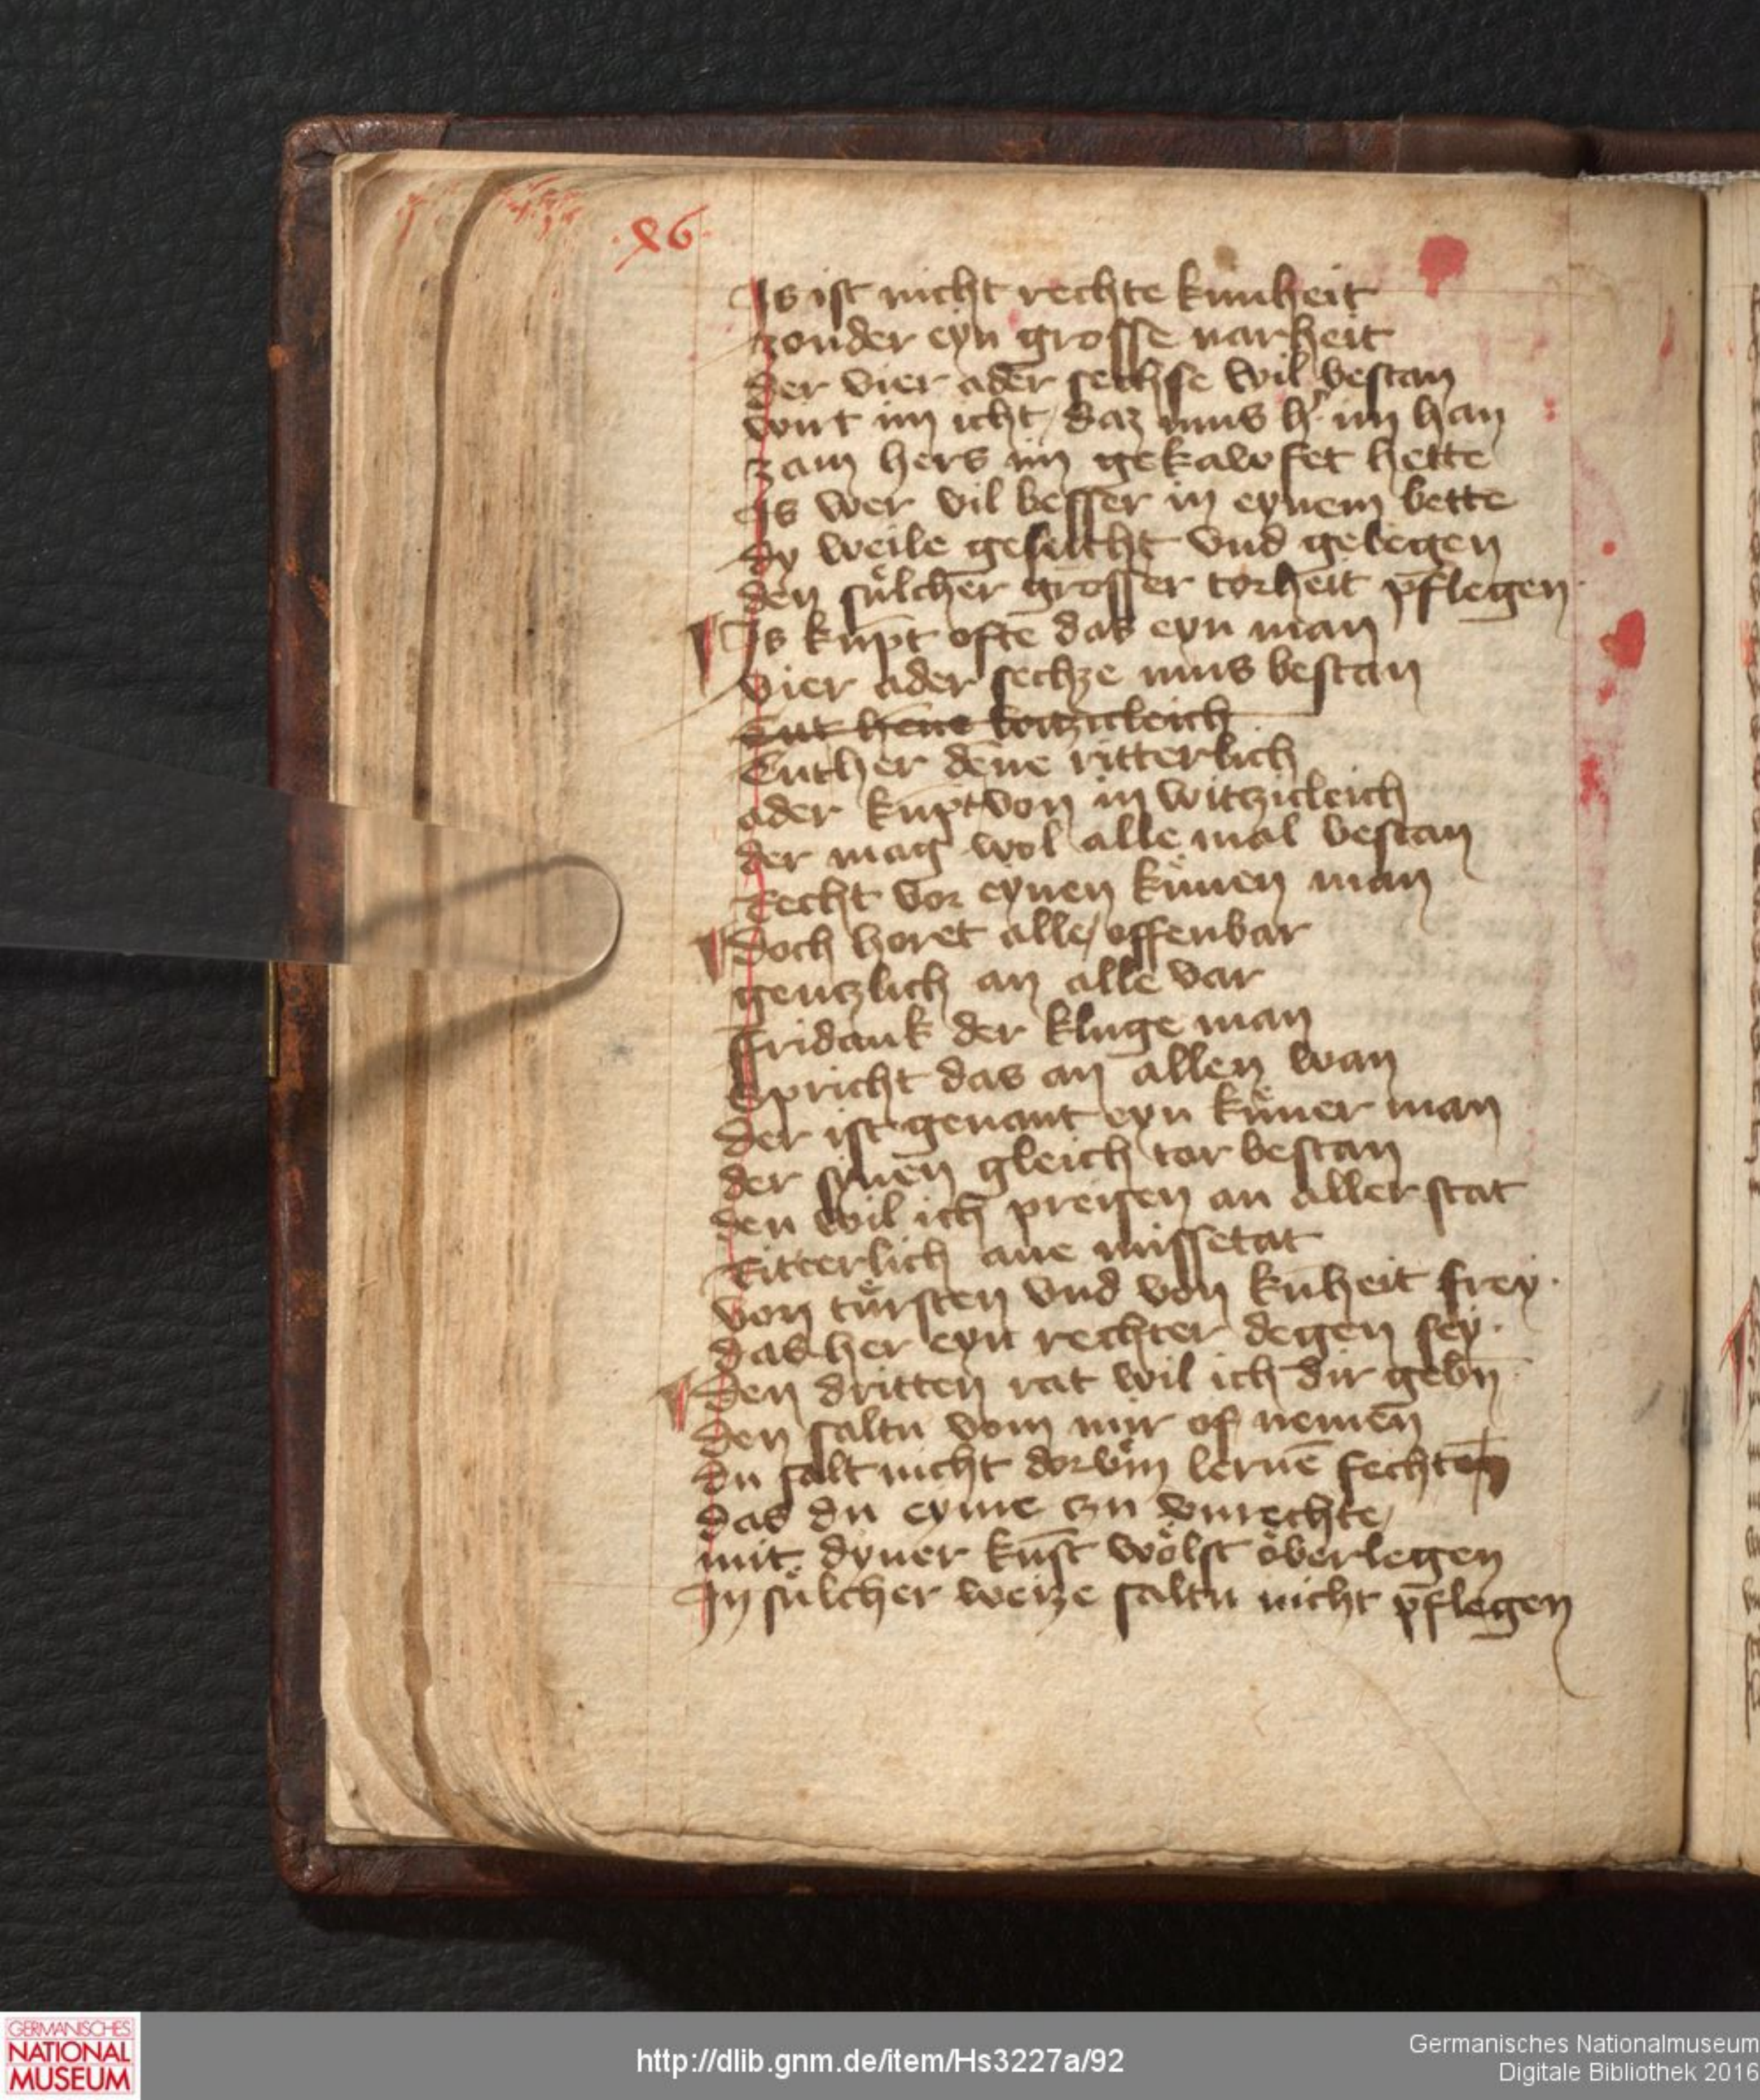 ·86·
Is ist nicht rechte kunheit
zonder eyn grosse narheit
der vier ader sechse wil bestan
wirt im icht / daz mus h' im han
zam hers im gekawfet hette
Is wer vil besser in eynem bette
dy weile gesucht vnd gelegen
den sülcher grosser torheit pflegen
Is kūpt ofte das eyn man
vier ader sechze mus bestan
Tut hene witziclich
Tuther dēne ritterlich
ader kūpt von in witzicleich
der mag wol alle mal bestan
Recht vor eynen künen man
Doch horet alle / offenbar
genczlich an alle var
ffridank der kluge man
Spricht das an allen wan
der ist genant eyn küner man
der synen gleich tar bestan
den wil ich preisen an aller stat
Ritterlich ane missetat
von türsten vnd von kūheit frey ·
das her eyn rechter degen sey ·
Den dritten rat wil ich dir gebn̄
den saltu vom mir of nemen
du salt nicht dorvm̄ lernē fechten
das du eyme czu vnrechte /
mit dyner kūst wölst öberlegen
In sülcher weize saltu nicht pflegen
GERMANISCHES
NATIONAL
MUSEUM
http://dlib.gnm.de/item/Hs3227a/92
Germanisches Nationalmuseum
Digitale Bibliothek 2016